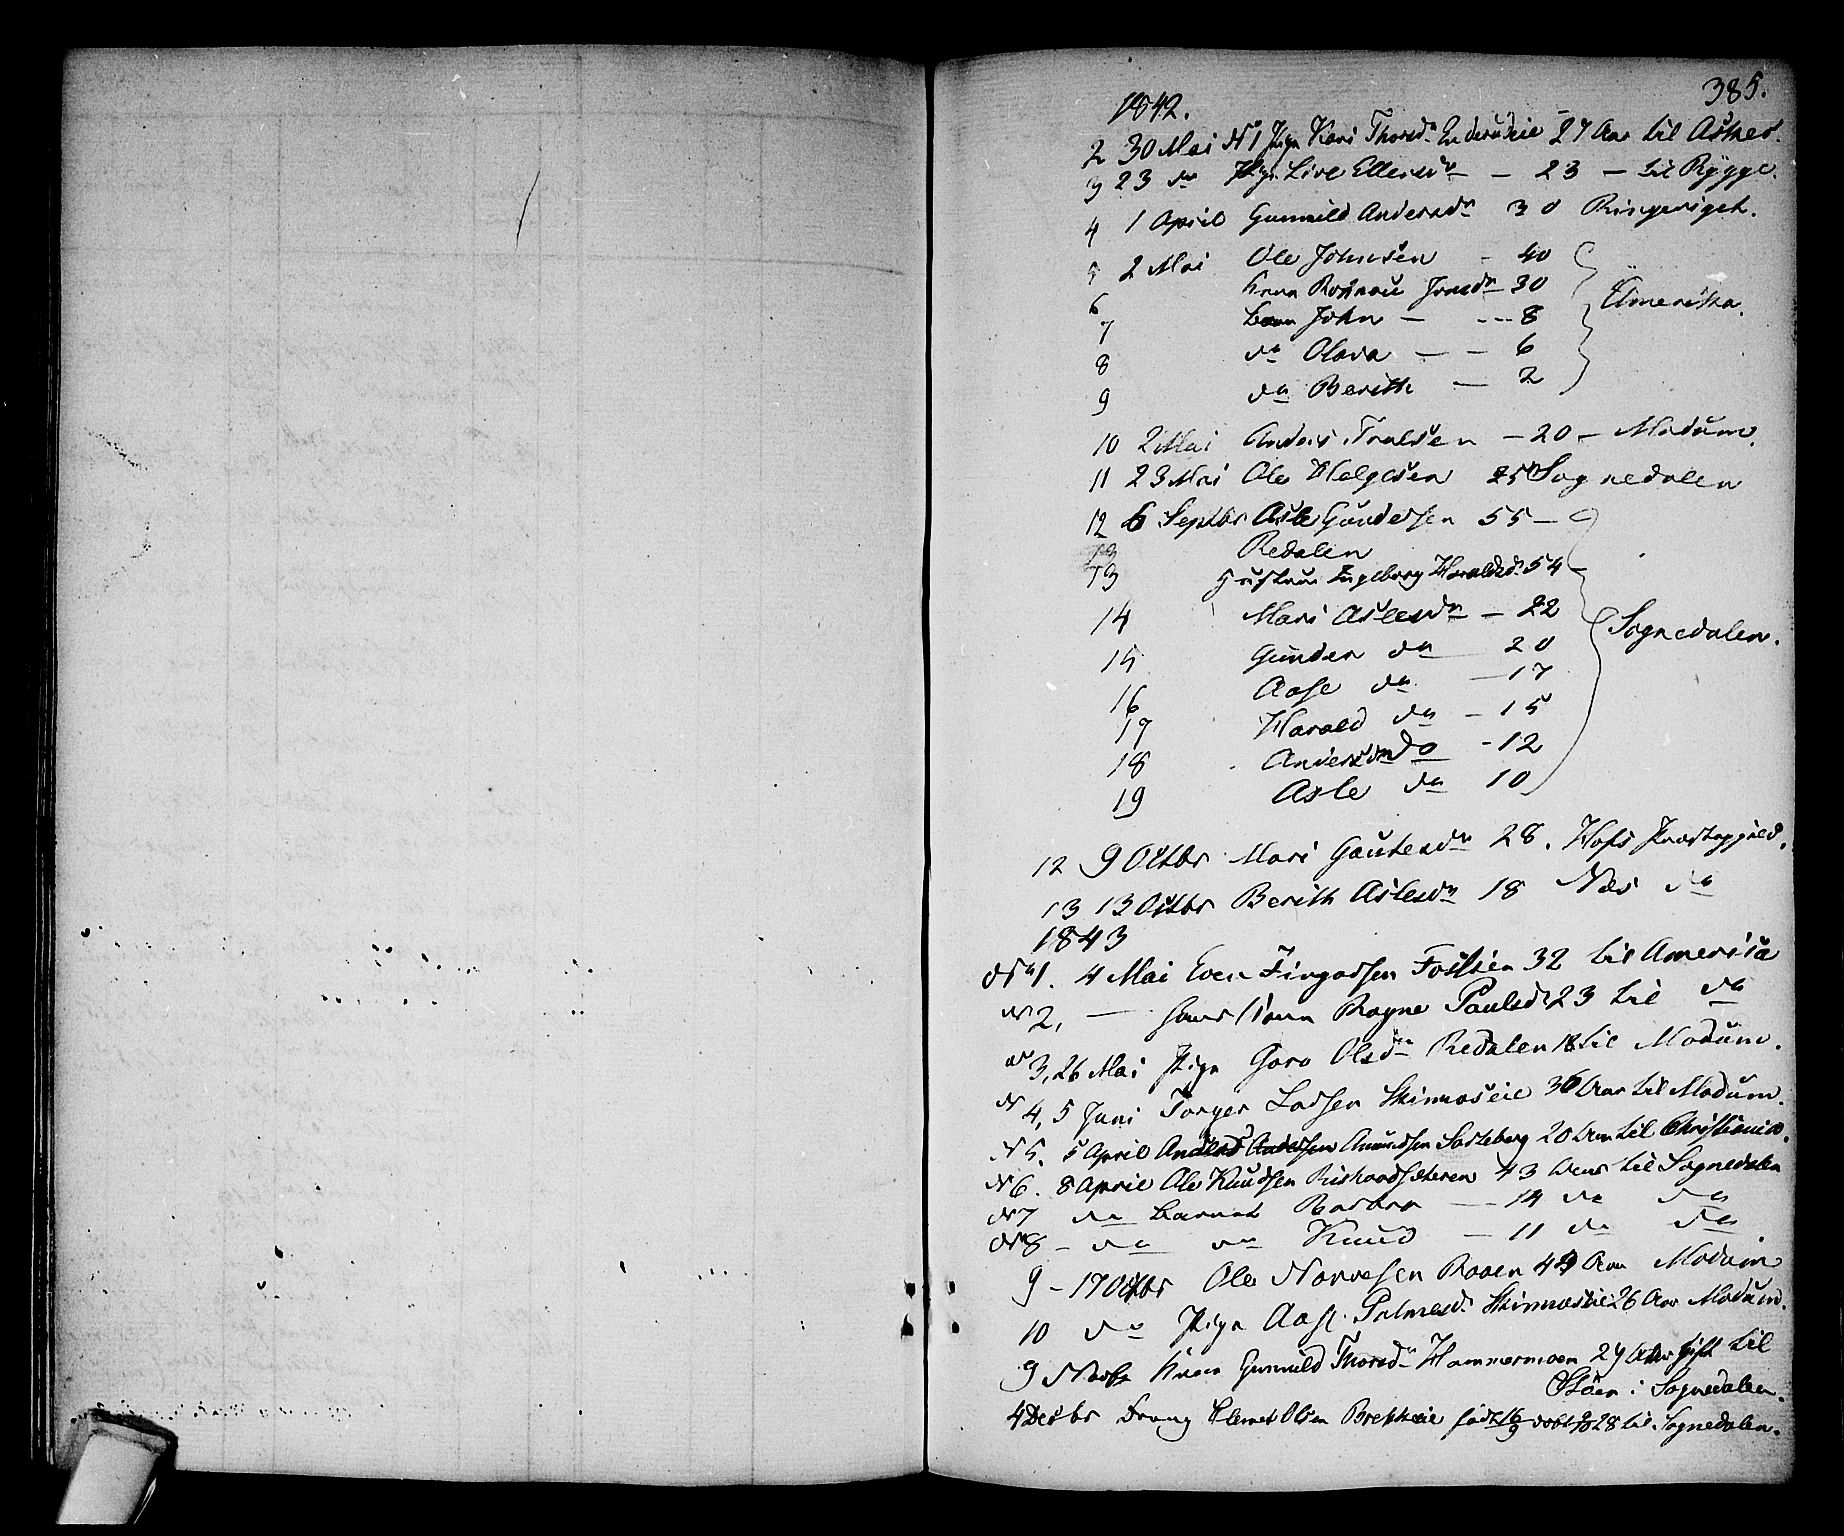 385.
1842.
2 30 Mai N 1 Pige Kari Thorsdr 27 Aar til Asker.
3 23 do Pige Live Ellensdr - 23 - til Rygge.
4 1 April Gunnild Andersdr 30 Ringeriget.
5 2 Mai Ole Johnsen - 40
6 Kona Ronnau Jonsdr 30 Amerika.
7 Barn John - --- 8
8 do Olava - - 6
9 do Berith - 2
10 2 Mai Anders Troelsen - 20 - Modum.
11 23 Mai Ole Helgesen 25 Sognedalen
12 6 Septbr Asle Gundersen 55 -
13 Redalen
13 Hustrue Ingeborg Haraldsdr 54 -
14 Mari Aslesdr - 22 Sognedalen.
15 Gunder do 20
16 Aase do - 17
17 Harald do - 15
18 do - 12
19 Asle do 10
12 9 Octbr Mari Gautesdr 28. Hofs Præstegjeld.
13 13 Octbr Berith Aslesdr 18 Næs do
1843
No 1. 4 Mai Even Fingarsen 32 til America
N 2, - hans Kona Ragne Paulsdr 23 til do
N 3, 26 Mai Pige Goro Olsdr Redalen 18 til Modum.
N 4, 5 Juni Torger Larsen Skinnæseie 36 Aar til Modum.
N 5. 5 April Amundsen Sorteberg 20 Aar til Christiania.
N 6. 8 April Ole Knudsen 43 Aar til Sognedalen
N 7 do Barnet Barbra - 14 do do
No 8 - do do Knud - 11 do do
9 - 17 Octbr Ole Narvesen Rooen Aar Modum
10 do Pige Aase Palmesdr Skinnæseie 26 Aar Modum.
9 Novbr Kone Gunnild Thorsdr Hammermoen 29 Aar gift til
Støen i Sognedalen.
4 Decbr Dreng Clemet Olsen Brekkeie født 16/9 døbt 28 til Sognedalen.